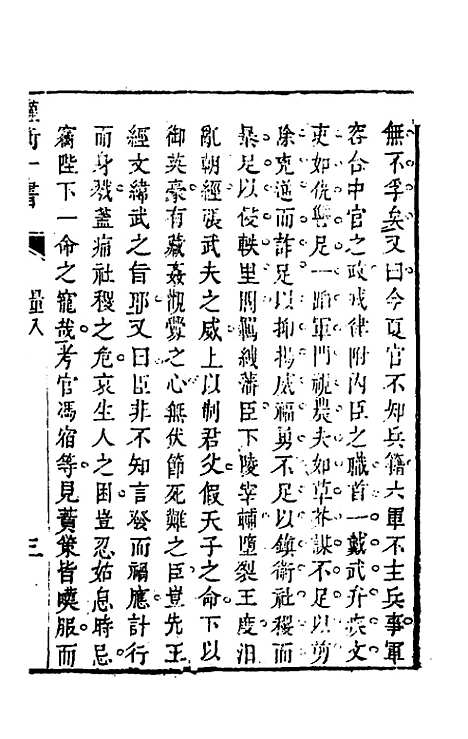 無不孚矣又曰今夏官不知兵籍六軍不主兵事軍
容合中官之政戎律附內臣之職首一戴武弁疾文
吏如仇讐足一蹈軍門視農夫如草芥謀不足以剪
除克逆而詐足以抑揚威福勇不足以鎮衛社稷而
暴足以侵軼里閭羈紲藩臣下陵宰輔墮裂王度汨
亂朝經張武夫之威上以制君父假天子之命下以
御英豪有藏姦觀釁之心無伏節死難之臣豈先王
經文緯武之旨耶又曰臣非不知言發而禍應計行
而身戮蓋痛社稷之危哀生人之困豈忍姑息時忌
竊陛下一命之寵哉考官馮宿等見蕡策皆嘆服而
衡一書
量入
三